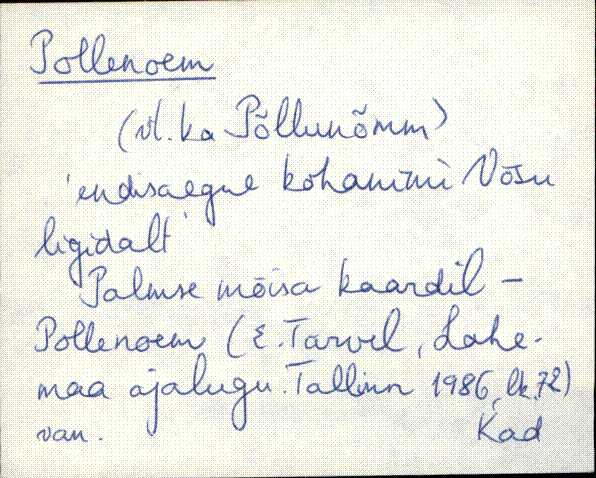 Pollenoem
(vt. ka Põllunõmm)
'endisaegne kohanimi Võsu
ligidalt'
Palmse mõisa kaardil -
Pollenoem (E. Tarvel, Lahe-
maa ajalugu. Tallinn 1986, lk. 72)
van. Kad